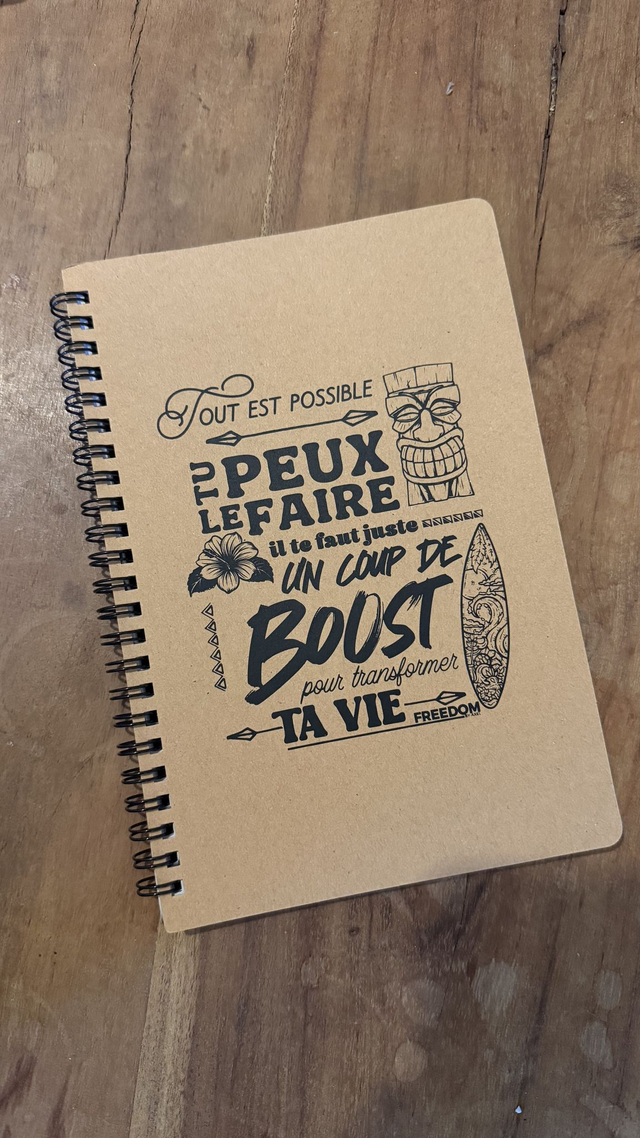 Tout est possible
TU PEUX
LE FAIRE
il te faut juste
UN COUP DE
BOOST
pour transformer
TA VIE
FREEDOM